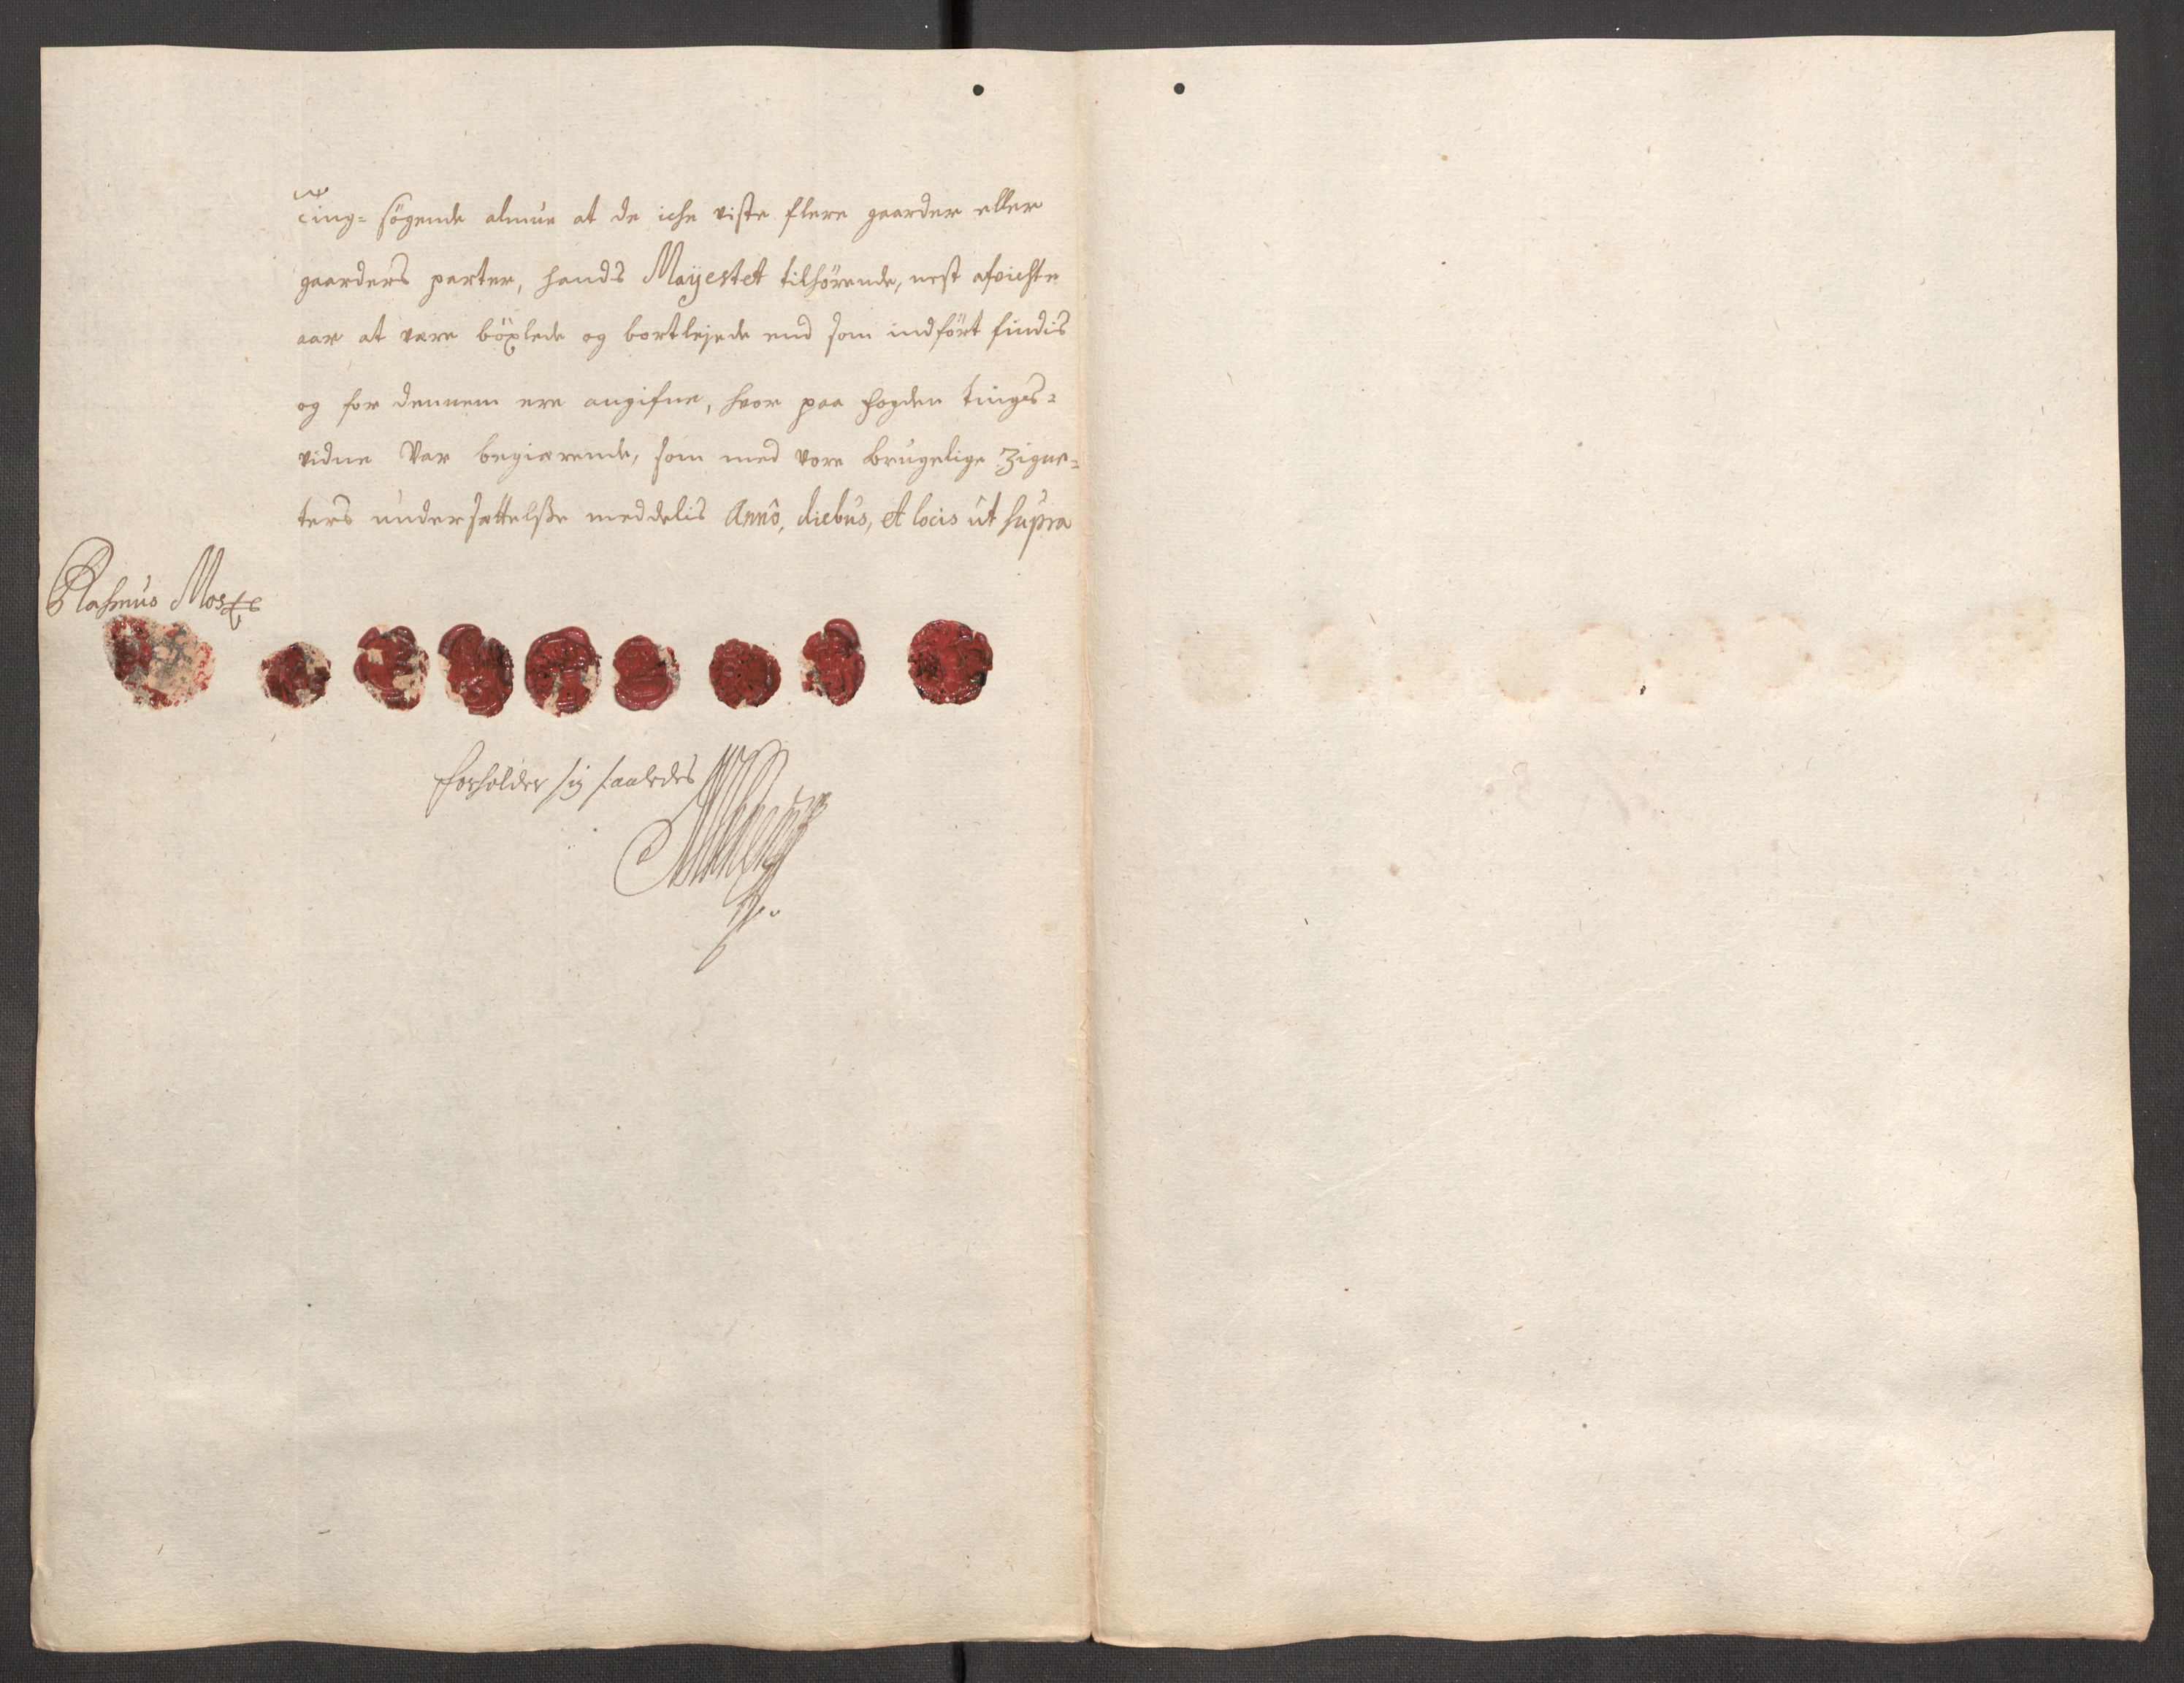 ting-søgende almue at de iche viste flere gaarder eller
gaarders parter, hands Mayestet tilhørende, nest afvichte
aar at være böxlede og bortlejede end som indført findis
og for dennem ere angifne, hvor paa fogden tings-
vidne var begiærende, som med vore brugelige Zigne-
ters undersættelsse meddelis Anno, diebus, et locis ut supra
Rasmus
forholder sig saaledes